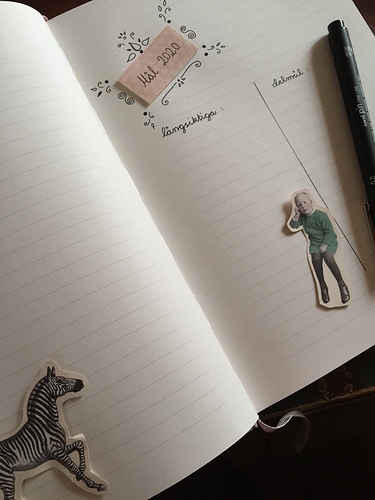 Mål 2020
långsiktiga :
delmål :